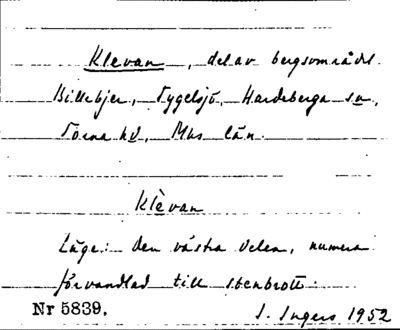 Klevan, del av bergsområdet
Billebjer, Fygelsjö, Hardeberga sn,
Torna hd, Mhs län.
Klèvan
Läge: den västra delen, numera
förvandlad till stenbrott.
Nr 5839. I. Ingers 1952